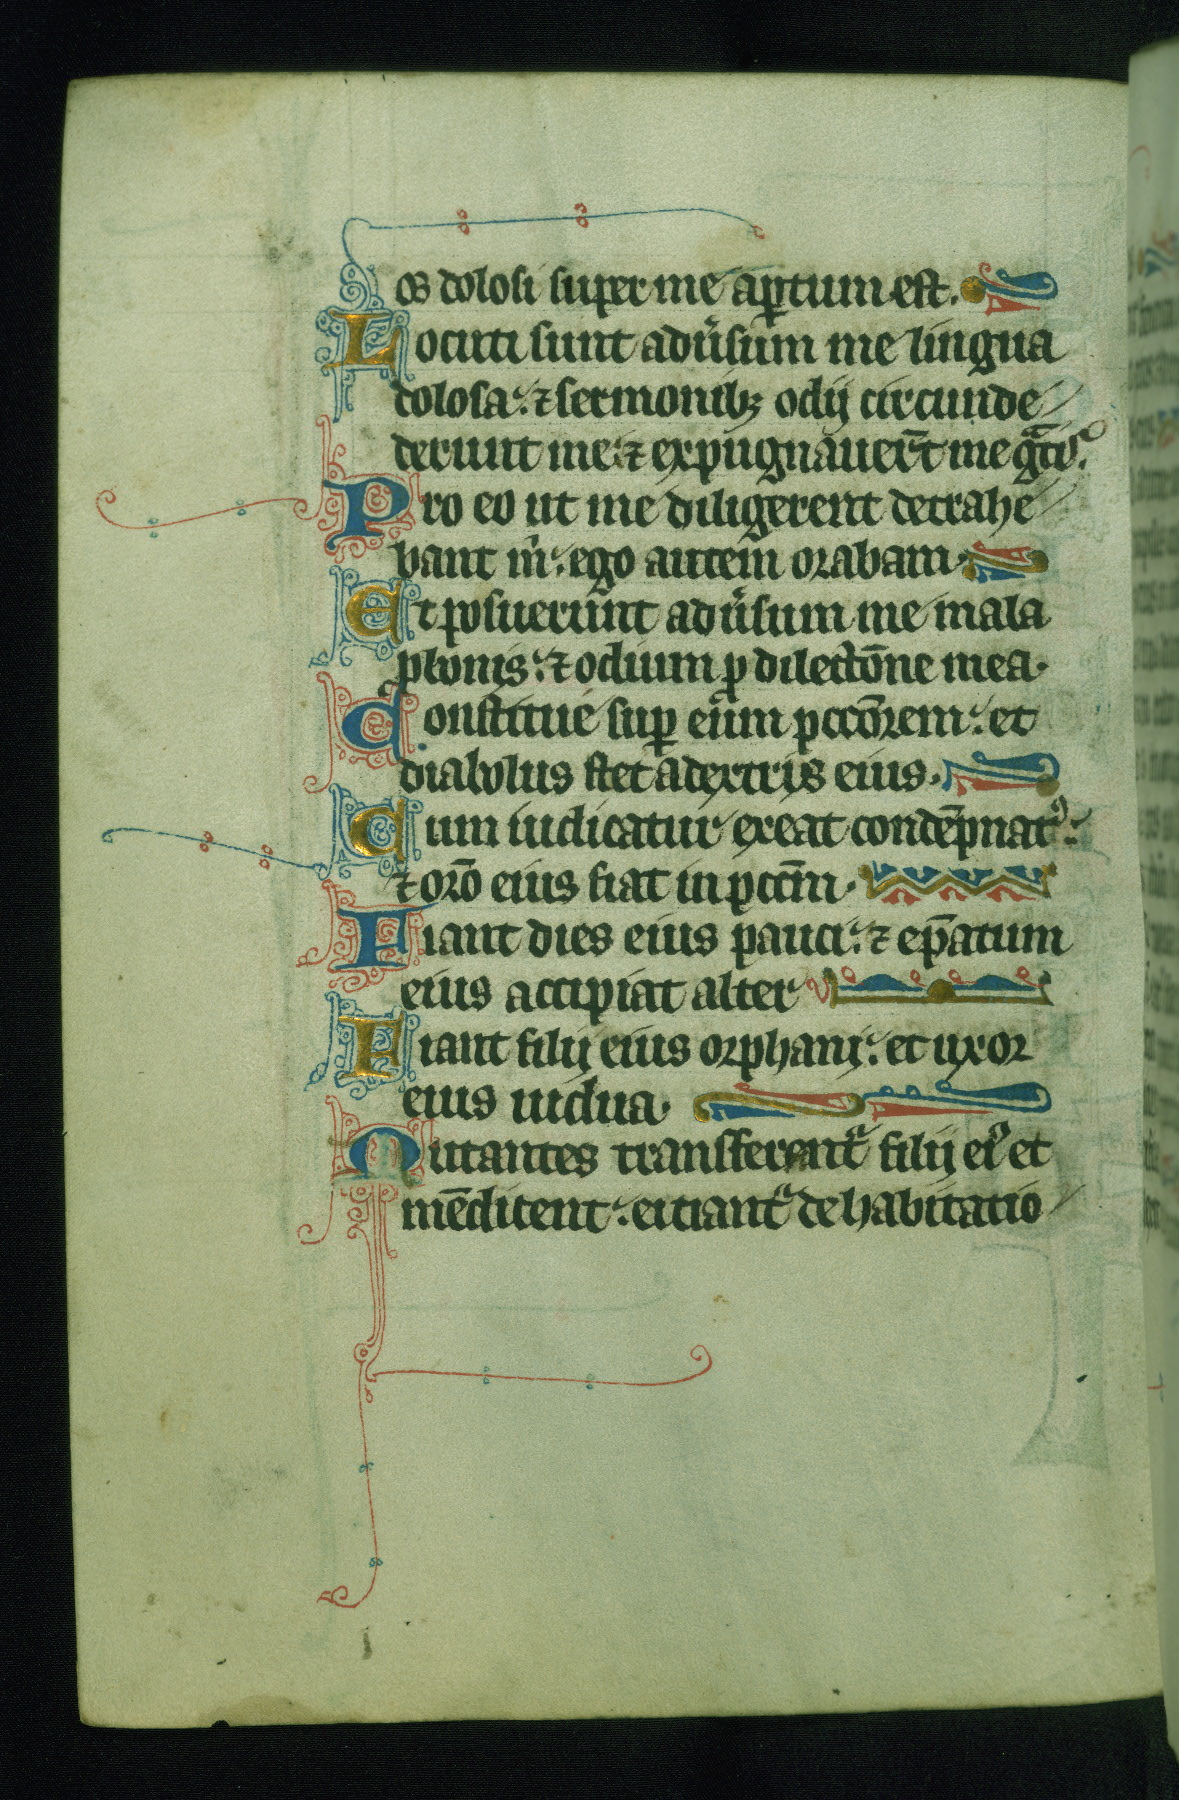 os dolosi super me aꝑtum est.
Locuti sunt adu̾sum me lingua
dolosa: ⁊ sermonibꝫ odij circunde
derunt me: ⁊ expugnauer̄t me gͣtis.
Pro eo ut me diligerent detrahe
bant m̄: ego autem orabam.
Et posuerunt adu̾sum me mala
ꝓ bonis: ⁊ odium ꝓ dilectōne mea.
Constitue suꝑ eum pccōrem: et
diabolus stet a dextris eius.
Cum iudicatur exeat condēpnatꝰ:
⁊ orō eius fiat in pccm̄.
Fiant dies eius pauci: ⁊ ep̄atum
eius accipiat alter
Fiant filij eius orphani: et uxor
eius uidua.
Nutantes transferentᷣ filij eiꝰ et
mēdicent: eitiantᷣ de habitatio